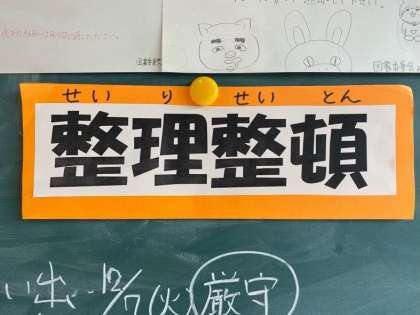 図書委員会
せいりせいとん
整理整頓
い出い12/7(火)厳守